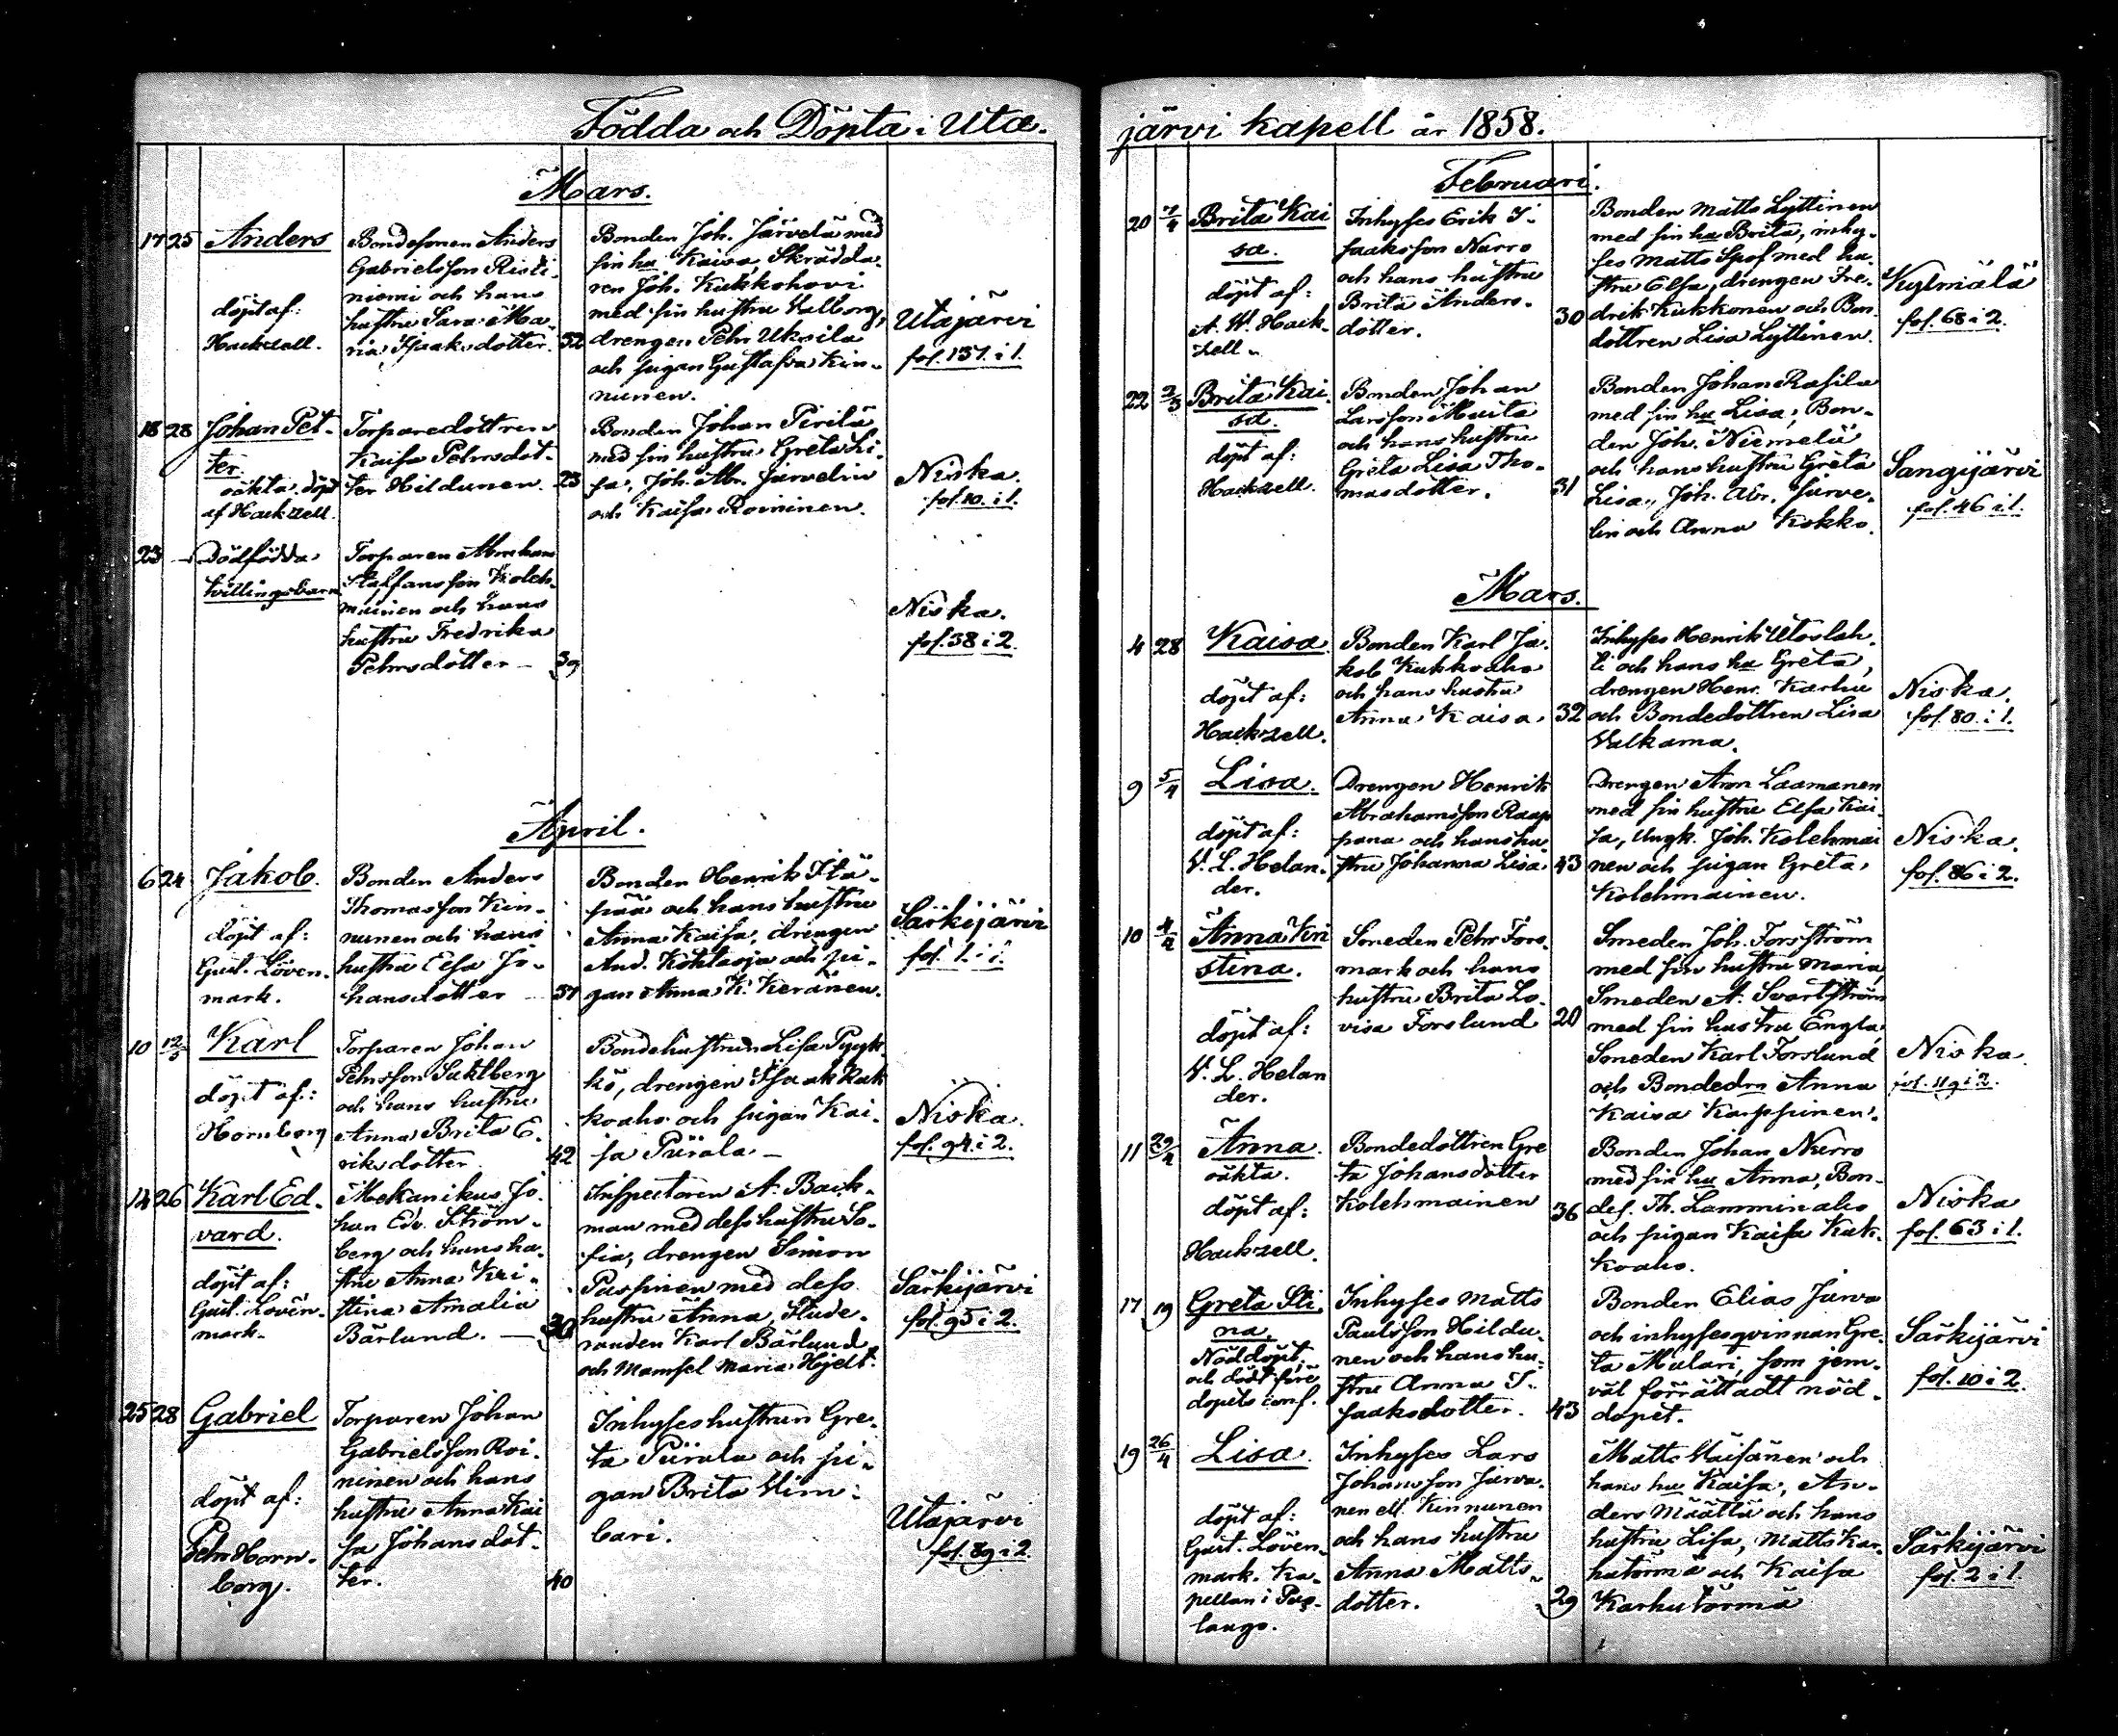 Födda och Döpta i Uta-
Mars.
17 25 Anders
döpt af:
Hackzell.
Bondesonen Anders
Gabrielsson Risti-
niemi och hans
hustru Sara Ma-
ria Isaksdotter. 32
Bonden Joh. Järvelä med
sin hu Kaisa Skrädda-
ren Joh. Kukkohovi
med sin hustru Valborg,
drengen Pehr Uksila
och pigan Gustafva Kin-
nunen.
Utajärvi
fol. 137. i 1.
18 28 Johan Pet-
ter.
oäkta. döpt
af Hackzell.
Torparedottren
Kaisa Pehrsdot-
ter Hildunen. 23
Bonden Johan Pirilä
med sin hustru Greta Li-
sa, Joh. Abr. Järvelin
och Kaisa Roininen.
Niska.
fol. 10. i 1.
23 — Dödfödda
tvillingsbarn
Torparen Abraham
Staffansson Koleh-
mainen och hans
hustru Fredrika
Pehrsdotter — 39
Niska.
fol. 38 i 2.
April.
6 24 Jakob.
döpt af:
Gust. Löven-
mark.
Bonden Anders
Thomasson Kin-
nunen och hans
hustru Elsa Jo-
hansdotter — 37
Bonden Henrik Itä-
pää och hans hustru
Anna Kaisa, drengen
And. Kohlaoja och pi-
gan Anna K. Keränen.
Särkijärvi
fol. 1. i 1.
10 12/5 Karl
döpt af:
Hornborg
Torparen Johan
Pehrsson Suhlberg
och hans hustru
Anna Brita E-
riksdotter 42
Bondehustrun Lisa Pyyk-
kö, drengen Isaak Kuk
koaho och pigan Kai-
sa Piirala —
Niska.
fol. 94. i 2.
14 26 Karl Ed-
vard.
döpt af:
Gust. Löven-
mark.
Mekanikus Jo-
han Edv. Ström-
berg och hans hu-
stru Anna Kri-
stina Amalia
Bärlund. — 30
Inspectoren A. Back-
man med dess hustru So-
fia, drengen Simon
Puspinen med dess
hustru Anna, Stude-
randen Karl Bärlund
och Mamsel Maria Hjelt.
Särkijärvi
fol. 95 i 2.
25 28 Gabriel
döpt af:
Pehr Horn-
borg.
Torparen Johan
Gabrielsson Roi-
ninen och hans
hustru Anna Kai
sa Johansdot-
ter. 40
Inhyseshustrun Gre-
ta Piirala och pi-
gan Brita Vim-
bari.
Utajärvi
fol. 89 i 2.
järvi kapell år 1858.
Februari.
20 7/4 Brita Kai
sa.
döpt af:
A. W. Hack-
zell.
Inhyses Erik I-
saaksson Nurro
och hans hustru
Brita Anders-
dotter. 30
Bonden Matts Lyttinen
med sin hu Brita, inhy-
ses Matts Spof med hu-
stru Elsa, drengen Fre-
drik Kukkonen och Bon-
dottren Lisa Lyttinen.
Kylmälä
fol. 68 i 2.
22 2/3 Brita Kai-
sa.
döpt af:
Hackzell.
Bonden Johan
Larsson Maita
och hans hustru
Greta Lisa Tho-
masdotter. 31
Bonden Johan Rasila
med sin hu Lisa, Bon-
den Joh. Niemelä
och hans hustru Greta
Lisa, Joh. Abr. Järve-
lin och Anna Kokko.
Sangijärvi
fol. 46 i 1.
Mars.
4 28 Kaisa.
döpt af:
Hackzell.
Bonden Karl Ja-
kob Kukkoaho
och hans hustru
Anna Kaisa. 32
Inhyses Henrik Utoslah-
ti och hans hu Greta,
drengen Henr. Karhu
och Bondedottren Lisa
Valkama.
Niska.
fol. 80. i 1.
9 5/4 Lisa.
döpt af:
V. L. Helan-
der.
Drengen Henrik
Abrahamsson Raap
pana och hans hu-
stru Johanna Lisa. 43
Drengen Aron Laamanen
med sin hustru Elsa Kai-
sa, Ungk. Joh. Kolehmai
nen och pigan Greta
Kolehmainen.
Niska.
fol. 86 i 2.
10 4/4 Anna Kri
stina.
döpt af:
V. L. Helan
der.
Smeden Pehr Fors-
mark och hans
hustru Brita Lo-
visa Forslund 20
Smeden Joh. Forsström
med sin hustru Maria,
Smeden A. Svartström
med sin hustru Engla,
Smeden Karl Forslund
och Bondedrn Anna
Kaisa Karppinen.
Niska
fol. 119 i 2.
11 29/4 Anna.
oäkta.
döpt af:
Hackzell.
Bondedottren Gre
ta Johansdotter
Kolehmainen 36
Bonden Johan Nurro
med sin hu Anna, Bon-
des. Th. Lamminaho
och pigan Kaisa Kuk-
koaho.
Niska
fol. 63 i 1.
17 19 Greta Sti
na.
Nöddöpt,
och död före
dopets conf.
Inhyses Matts
Paulsson Hildu-
nen och hans hu-
stru Anna I-
saaksdotter. 43
Bonden Elias Jurva
och inhysesqvinnan Gre-
ta Mulari, som jem-
väl förrättadt nöd-
dopet.
Särkijärvi
fol. 10 i 2
19 26/4 Lisa.
döpt af:
Gust. Löven-
mark. Ka-
pellan i Puo-
lango.
Inhyses Lars
Johansson Jurva-
nen ell. Kinnunen
och hans hustru
Anna Matts-
dotter. 29
Matts Väisänen och
hans hu Kaisa, An-
ders Määttä och hans
hustru Lisa, Matts Kar-
hutörmä och Kaisa
Karhutörmä
Särkijärvi
fol. 2 i 1.